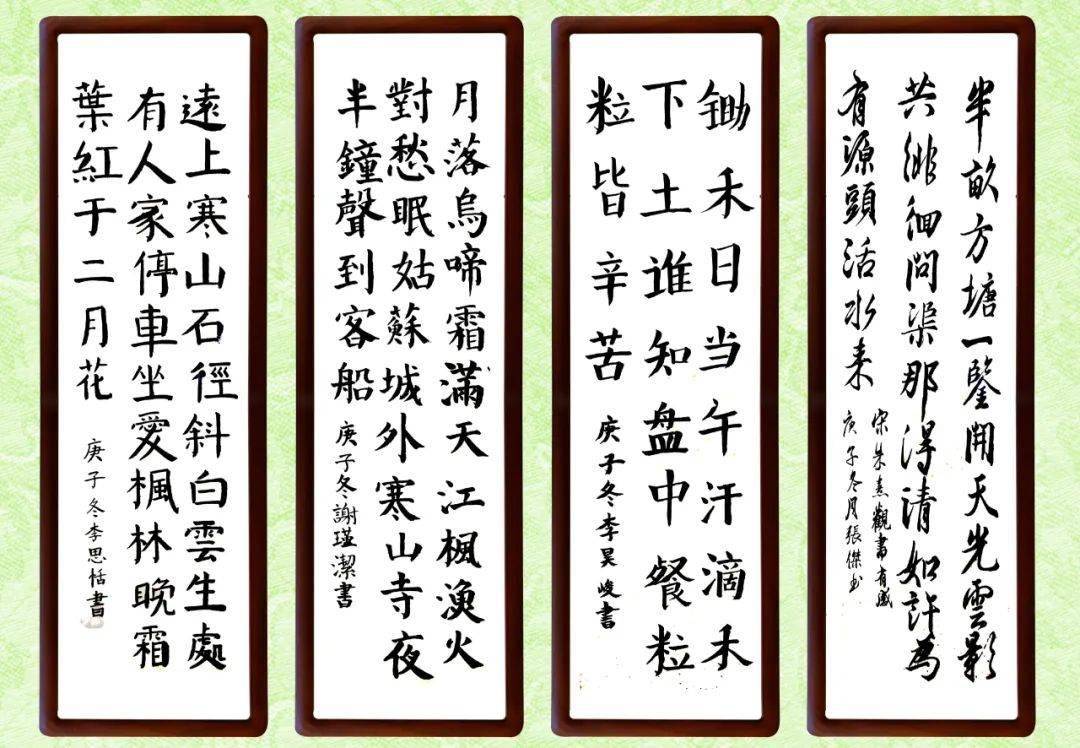 半畝方塘一鑒開天光雲影
共徘徊問渠那得清如許為
有源頭活水来
宋朱熹觀書有感
庚子冬月張傑书
锄禾日当午汗滴禾
下土谁知盘中餐粒
粒皆辛苦
庚子冬李昊峻書
月落烏啼霜滿天江楓漁火
對愁眠姑蘇城外寒山寺夜
半鐘聲到客船
庚子冬謝瑾潔書
遠上寒山石徑斜白雲生處
有人家停車坐愛楓林晚霜
葉紅于二月花
庚子冬李思恬書